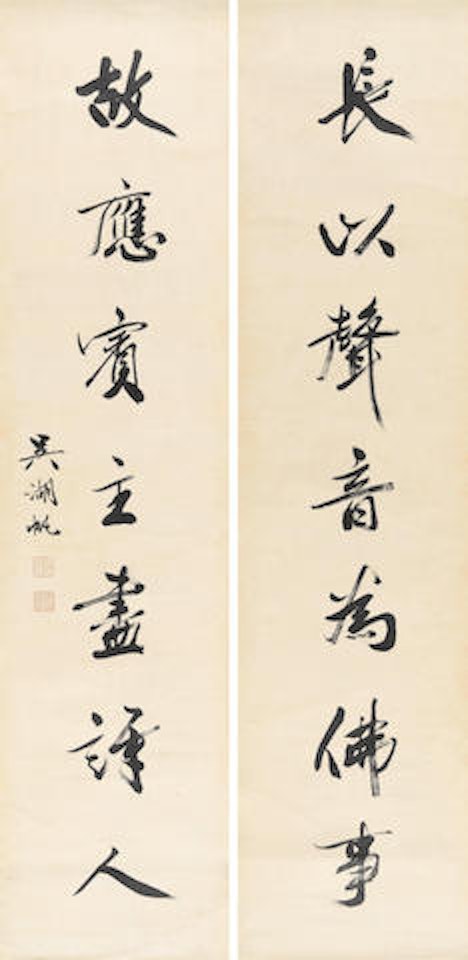 長以聲音為佛事
故應賓主盡詩人
吳湖帆